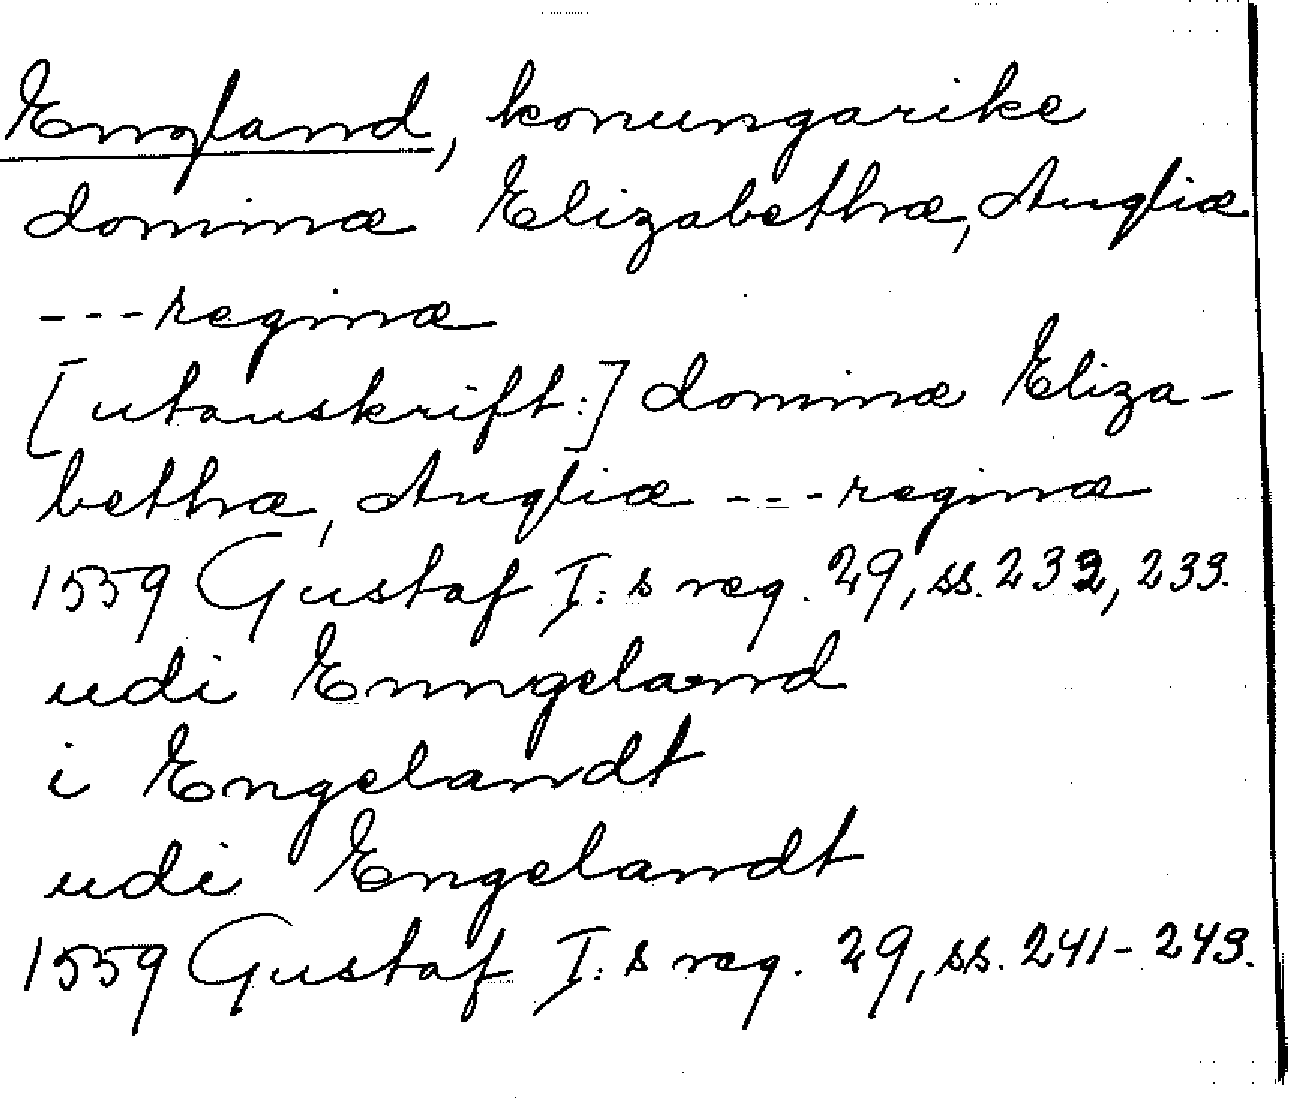 England, konungarike
dominæ Elizabethæ, Angliæ
---reginæ
[utanskrift:] dominæ Eliza-
bethæ, Angliæ ---reginæ
1559 Gustaf I:s reg. 29, ss. 232, 233.
udi Enngeland
i Engelandt
udi Engelandt
1559 Gustaf I:s reg. 29, ss. 241-243.